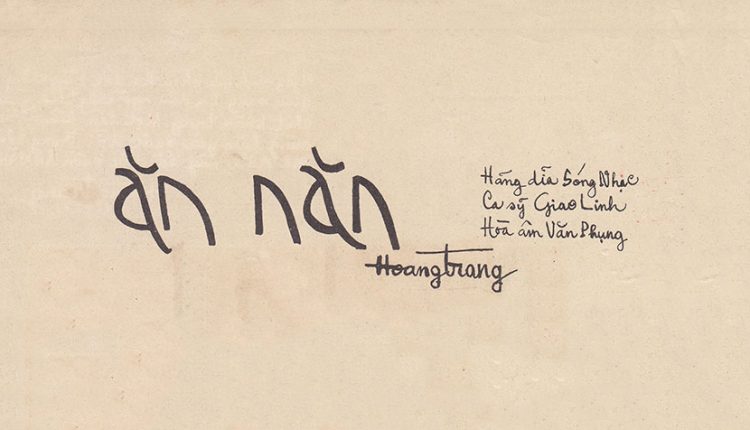 ăn năn
Hoangtrang
Hãng dĩa Sóng Nhạc
Ca sỹ Giao Linh
Hòa âm Văn Phụng